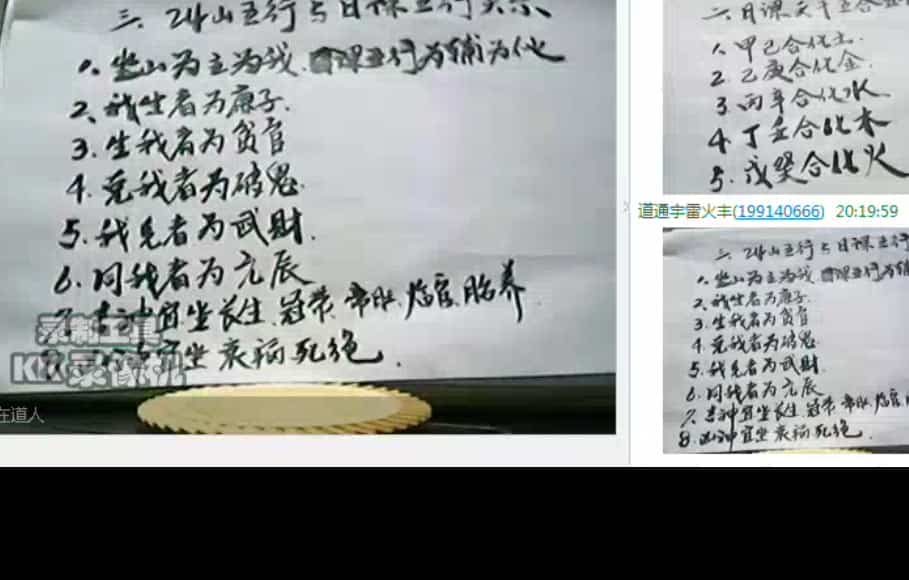 三、24山五行与日课五行关系
1、坐山为主为我、日课五行为辅为他
2、我生者为廉子.
3.生我者为贪官
4.克我者为破鬼.
5.我克者为武财.
6.同我者为元辰
7.吉神宜坐长生.冠带.帝旺.临官.胎养.
8.凶神宜坐衰病死绝.
在道人
二、日课天干五合
1.甲己合化土.
2.乙庚合化金.
3.丙辛合化水.
4.丁壬合化木
5.戊癸合化火
道通宇雷火丰(199140666) 20:19:59
三、24山五行与日课五行
1、坐山为主为我 日课五行为辅
2、我生者为廉子.
3.生我者为贪官
4.克我者为破鬼.
5.我克者为武财.
6.同我者为元辰
7.吉神宜坐长生.冠带.帝旺.临官
8.凶神宜坐衰病死绝.